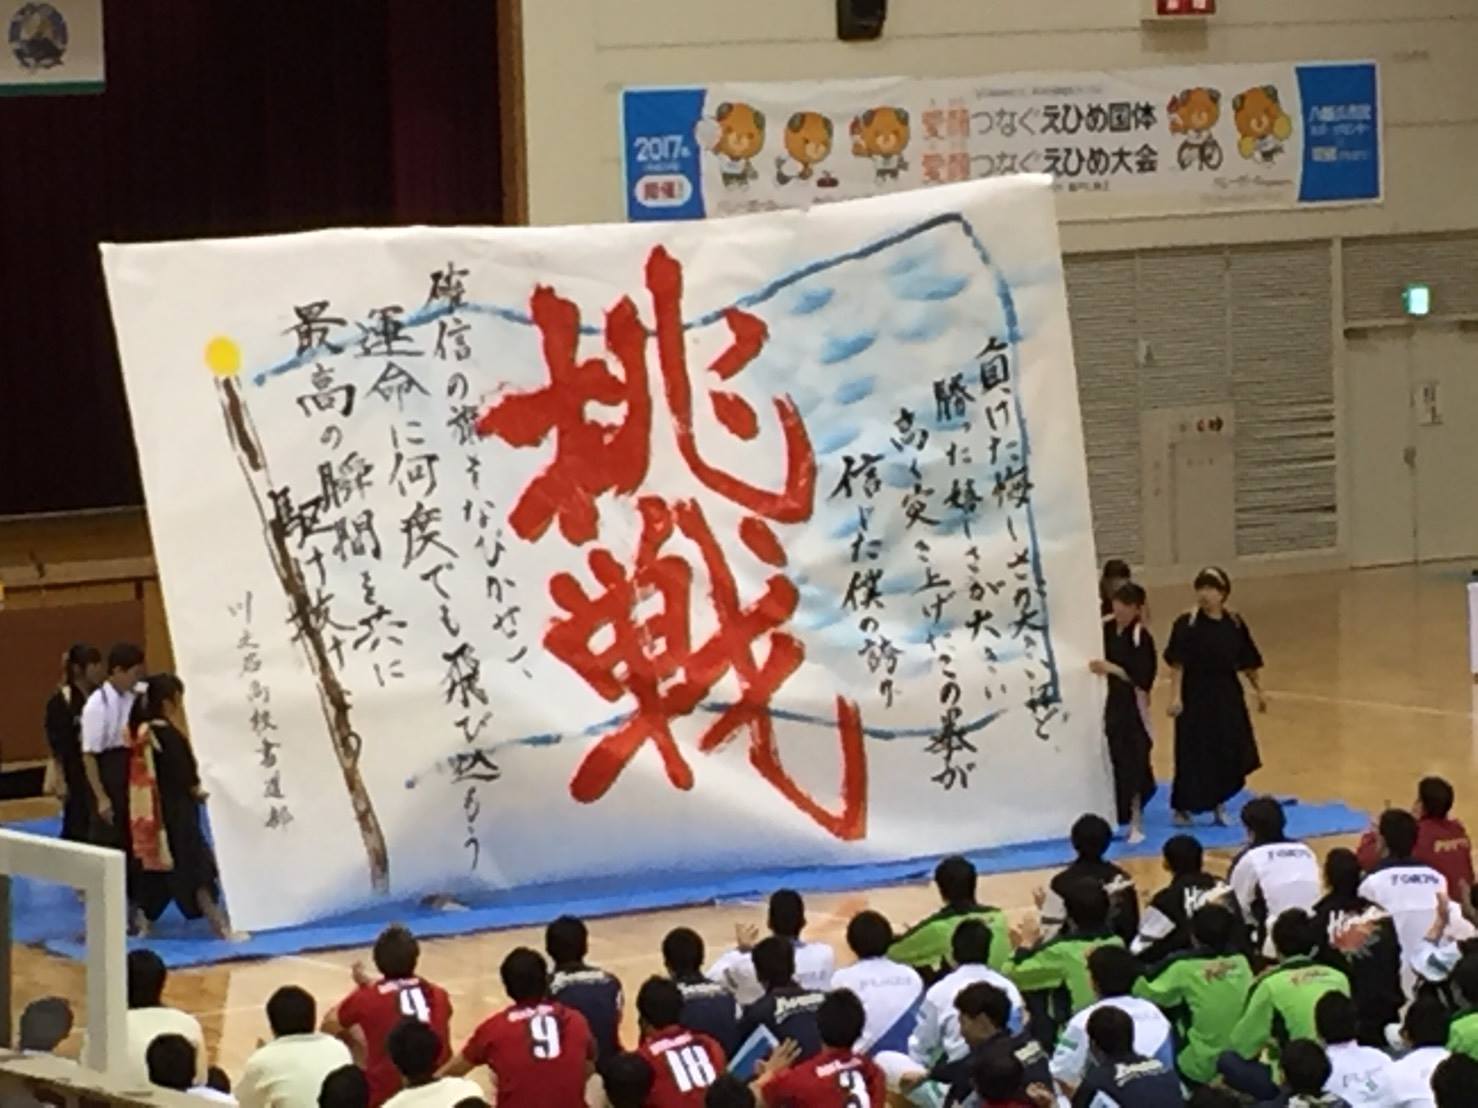 2017年
開催!
愛顔つなぐえひめ国体
愛顔つなぐえひめ大会
挑戦
負けた悔しさの大きいほど
勝った嬉しさが大きい
高く突き上げたこの拳が
信じた僕の誇り
確信の旗をなびかせて、
運命に何度でも飛び込もう
最高の瞬間を共に
駆け抜け
川之石高校書道部
4
9
18
3